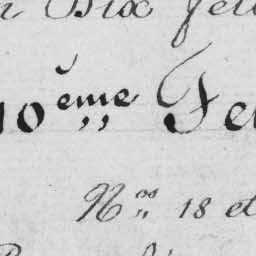 Dix feu
10ème Fe
Nos 18 et